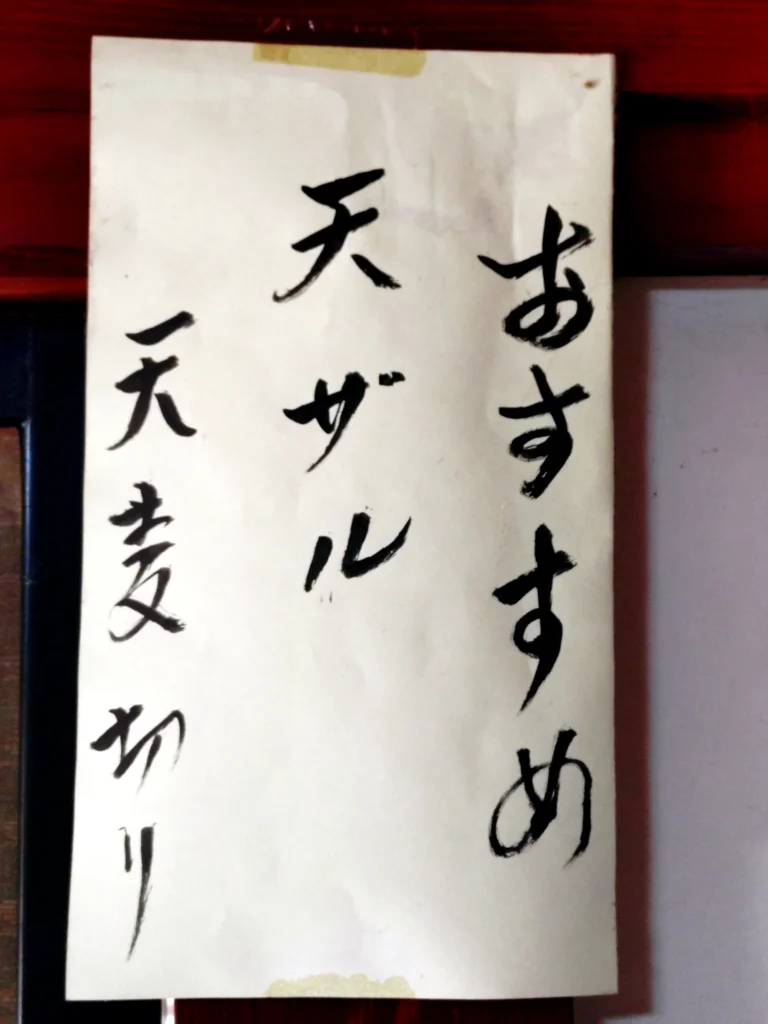 おすすめ
天ザル
天麦切り